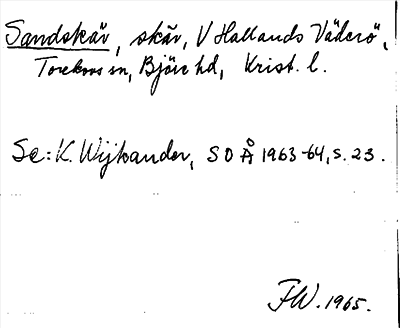 Sandskär, skär, V Hallands Väderö,
Torekovs sn, Bjäre hd, Krist. l.
Se: K. Wijkander, SOÅ 1963-64, s. 23.
FW. 1965.